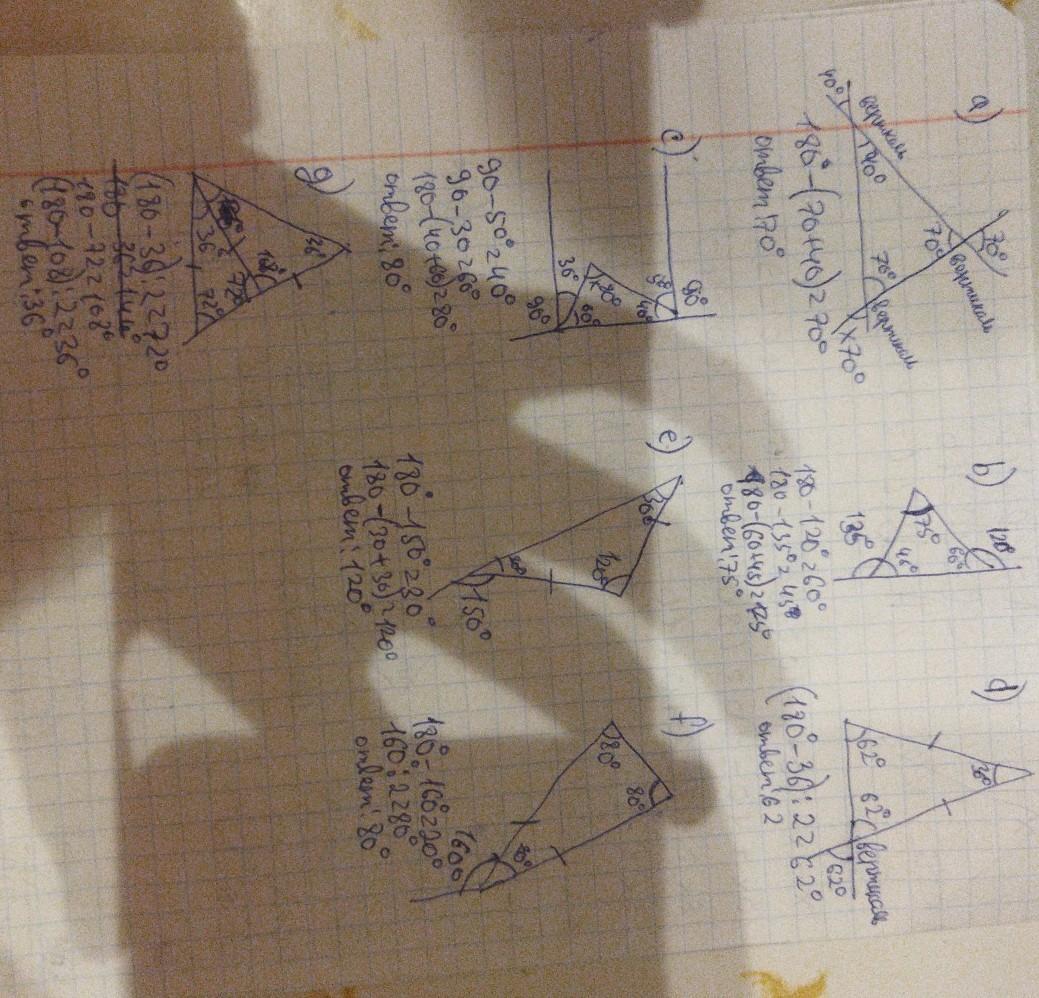 a)
70°
вертикаль
70°
вертикаль
40°
40°
70°
вертикаль
x70°
180°-(70+40)=70°
ответ:70°
b)
120°
75°
60°
45°
135°
180-120°=60°
180-135°=45°
180-(60+45)=75°
ответ:75°
d)
36°
62°
62°
вертикаль
62°
(180°-36):2=62°
ответ:62
c)
90°
40°
80°
60°
30°
90°
90-50°=40°
90-30=60°
180-(40+60)=80°
ответ:80°
e)
30°
120°
30°
150°
180°-150°=30°
180-(30+30)=120°
ответ:120°
f)
80°
80°
160°
180°-160°=20°
160:2=80°
ответ:80°
g)
36°
108°
36°
72°
72°
(180-36):2=72°
180-72=108°
(180-108):2=36°
ответ:36°